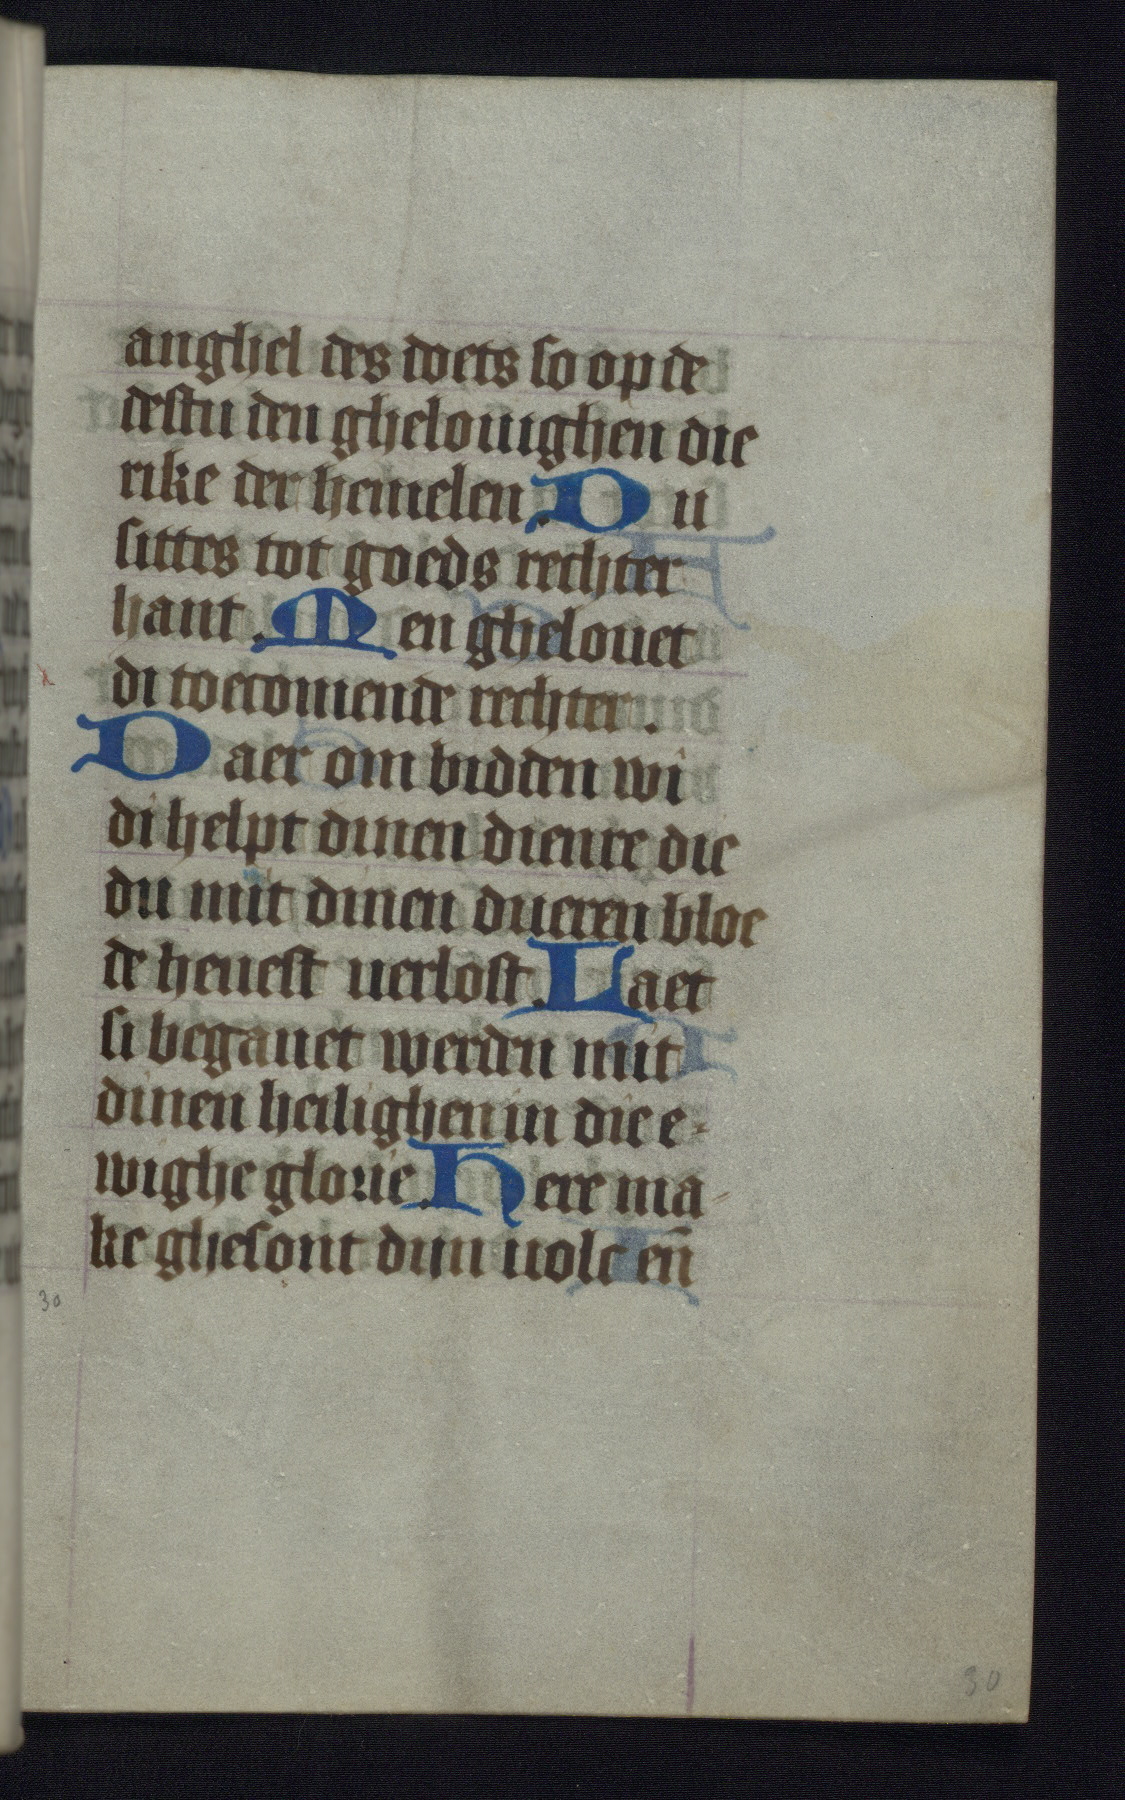 anghel des doets so op de
destu den ghelouighen die
rike der hemelen. Du
sittes tot goeds rechter
hant. Men ghelouet
di toecomende rechter.
Daer om bidden wi
di helpt dinen dienre die
du mit dinen dueren bloe
de heuest uerlost. Laet
si begauet werden mit
dinen heilighen in die e-
wighe glorie. Here ma-
ke ghesont dijn uolc en̄
30
30